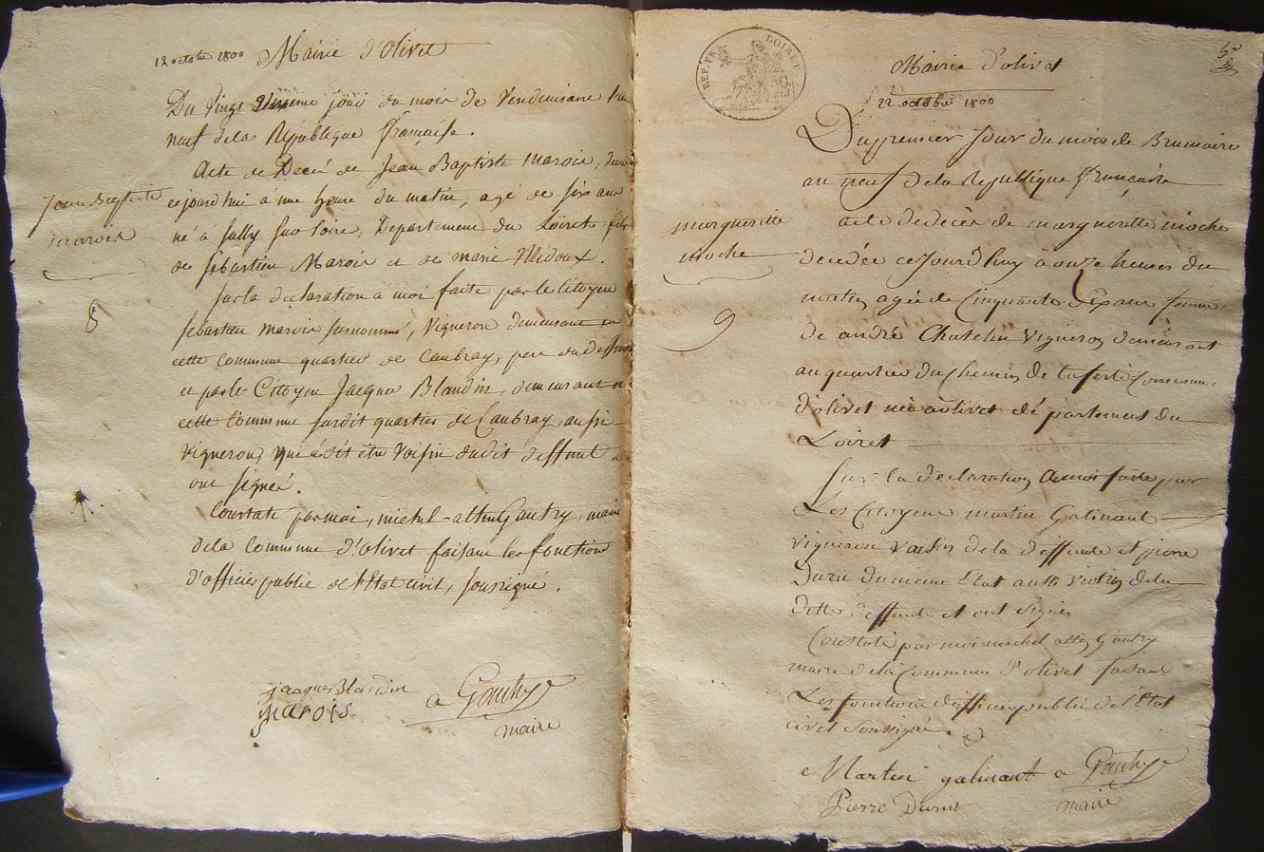 12 octobre 1800 Mairie d'Olivet
Du Vingt jour du mois de Vendemiaire l'an
neuf de la République française.
Acte de Décé de Jean Baptiste Marois,
Jean Baptiste
Marois
cejourd'hui à une heure du matin, agé de six ans
né à Sully sur loire, Departement du Loiret, fils
de Sébastien Marois et de marie
8
sur la declaration à moi faite par le Citoyen
sébastien marois surnommé, vigneron demeurant en
cette commune quartier de Caubray, pere du deffunt
et par le Citoyen Jacques Blandin, demeurant en
cette Commune susdit quartier de Caubray, aussi
vigneron, qui a dit être voisin dudit deffunt et
ont signés.
Constaté par moi, michel-allen Gautry, maire
de la Commune d'Olivet faisant les fonctions
d'officier public de l'Etat civil, soussigné.
jacques Blandin
Marois
a Gautry
maire
REP. FR. LOIRET
5e
Mairie d'olivet
22 octobre 1800
Du premier Jour du mois de Brumaire
an neuf de la République française
marguerite
mioche
acte de decès de marguerite mioche
decedée cejourd'huy à onze heures du
matin agée de Cinquante Six ans femme
9
de andré Chatelin Vigneron demeurant
au quartier du Chemin de la ferté Commune
d'olivet née a olivet département du
Loiret
Sur la declaration a moi faite par
Les Citoyens martin Galinant
vigneron voisin de la deffunte et pierre
Durie du meme Etat aussi voisin de la
ditte deffunte et ont signés
Constaté par moi michel allen Gautry
maire de la Commune d'olivet faisant
Les fonctions d'officier public de l'Etat
civil soussigné.
Martin galinant a Gautry
Pierre maire